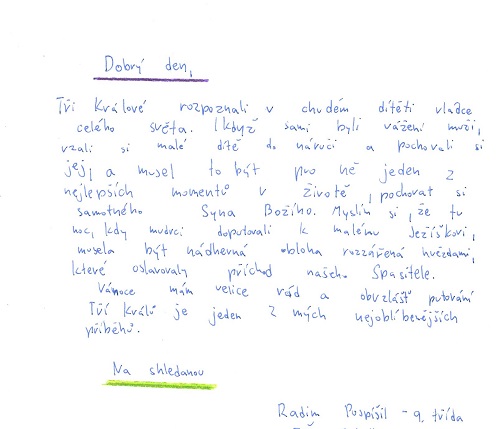 Dobrý den,
Tři Králové rozpoznali v chudém dítěti vladce
celého světa. Ikdyž sami byli vážení muži,
vzali si malé dítě do náručí a pochovali si
jej, a musel to být pro ně jeden z
nejlepších momentů v životě, pochovat si
samotného Syna Božího. Myslím si, že tu
noc, kdy mudrci doputovali k malému Ježíškovi,
musela být nádherná obloha rozzářená hvězdami,
které oslavovaly příchod našeho Spasitele.
Vánoce mám velice rád a obvzlášť putování
Tří Králů je jeden z mých nejoblíbenějších
příběhů.
Na shledanou
Radim Pospíšil - 9. třída